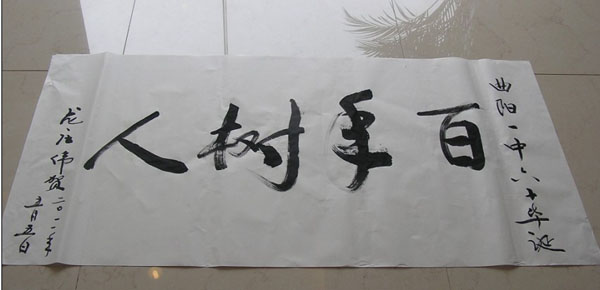 曲阳一中六十华诞
百年树人
龙庄伟贺二〇一二年
五月五日